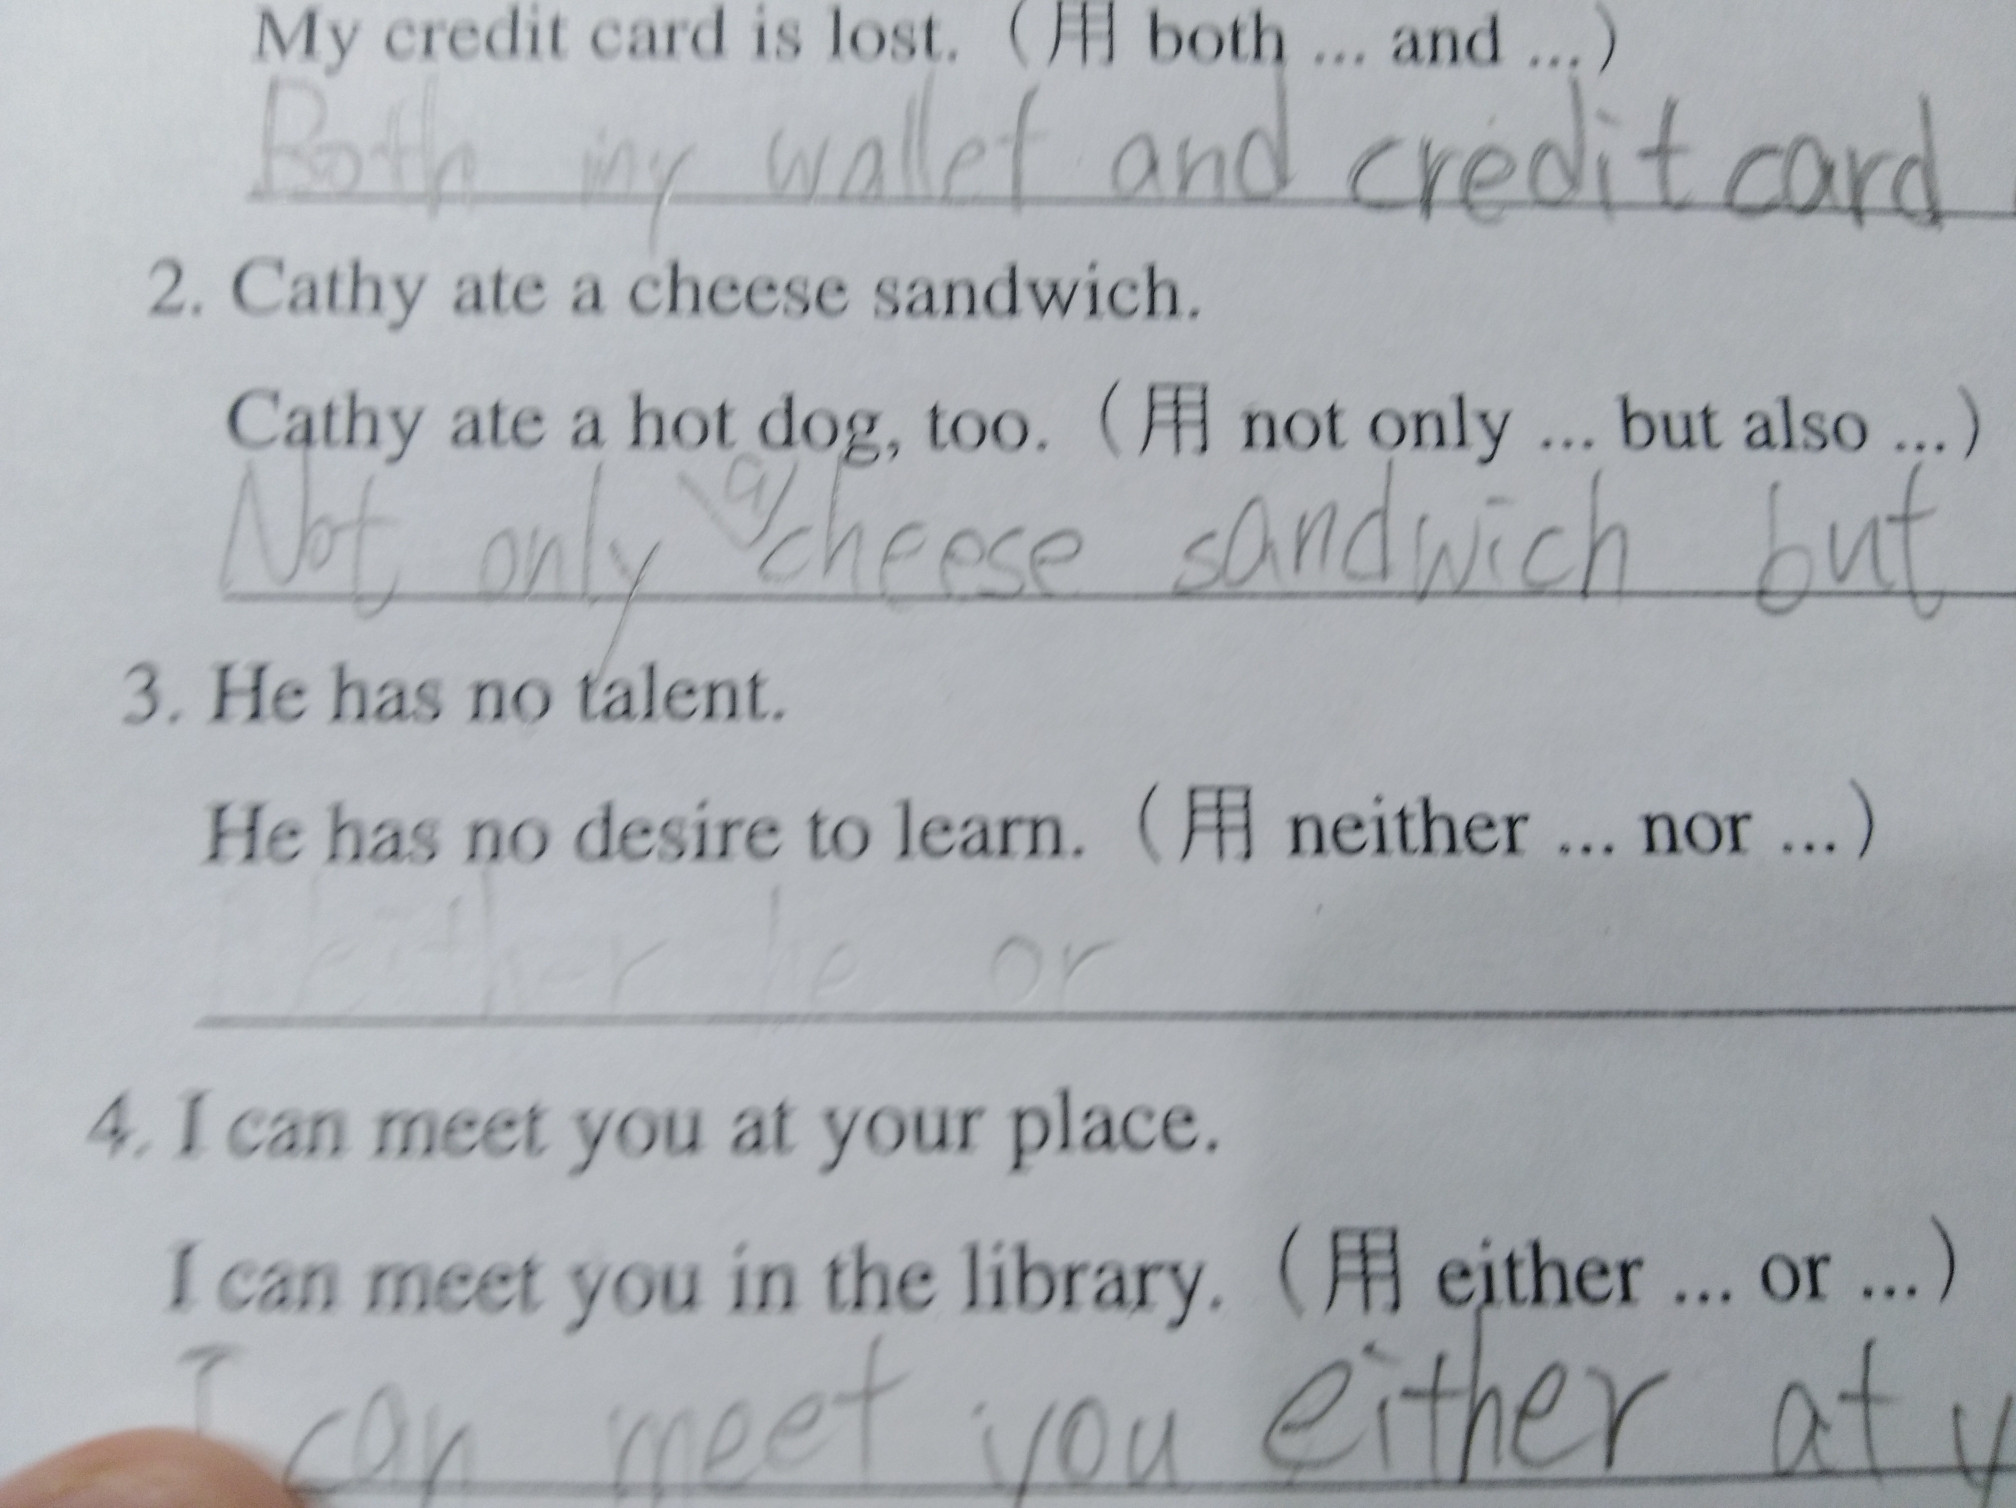 My credit card is lost.（用 both ... and ...）
Both my wallet and credit card
2. Cathy ate a cheese sandwich.
Cathy ate a hot dog, too.（用 not only ... but also ...）
a
Not only cheese sandwich but
3. He has no talent.
He has no desire to learn.（用 neither ... nor ...）
he or
4. I can meet you at your place.
I can meet you in the library.（用 either ... or ...）
I can meet you either at y